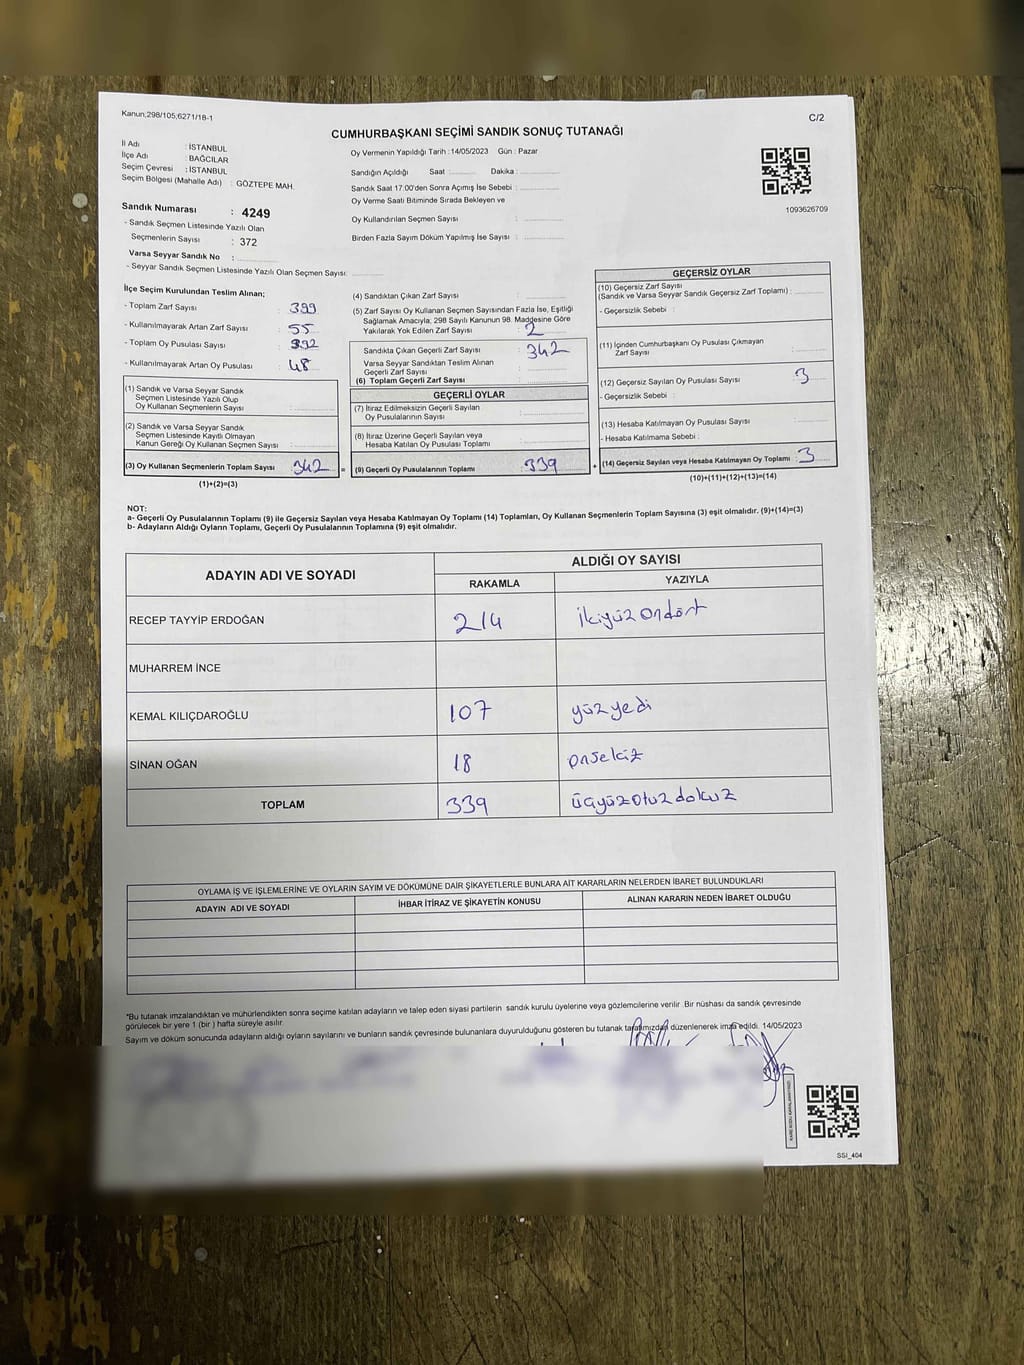 Kanun,298/105;6271/18-1
C/2
CUMHURBAŞKANI SEÇİMİ SANDIK SONUÇ TUTANAĞI
İl Adı : İSTANBUL
İlçe Adı : BAĞCILAR
Seçim Çevresi : İSTANBUL
Seçim Bölgesi (Mahalle Adı) : GÖZTEPE MAH.
Oy Vermenin Yapıldığı Tarih : 14/05/2023 Gün : Pazar
Sandığın Açıldığı Saat : Dakika :
Sandık Saat 17:00'den Sonra Açımış İse Sebebi :
Oy Verme Saati Bitiminde Sırada Bekleyen ve
Oy Kullandırılan Seçmen Sayısı :
Birden Fazla Sayım Döküm Yapılmış İse Sayısı :
1093626709
Sandık Numarası : 4249
- Sandık Seçmen Listesinde Yazılı Olan
Seçmenlerin Sayısı : 372
Varsa Seyyar Sandık No :
- Seyyar Sandık Seçmen Listesinde Yazılı Olan Seçmen Sayısı:
İlçe Seçim Kurulundan Teslim Alınan;
- Toplam Zarf Sayısı : 399
- Kullanılmayarak Artan Zarf Sayısı : 55
- Toplam Oy Pusulası Sayısı :
- Kullanılmayarak Artan Oy Pusulası : 48
(1) Sandık ve Varsa Seyyar Sandık
Seçmen Listesinde Yazılı Olup
Oy Kullanan Seçmenlerin Sayısı :
(2) Sandık ve Varsa Seyyar Sandık
Seçmen Listesinde Kayıtlı Olmayan
Kanun Gereği Oy Kullanan Seçmen Sayısı :
(3) Oy Kullanan Seçmenlerin Toplam Sayısı : 342 =
(1)+(2)=(3)
(4) Sandıktan Çıkan Zarf Sayısı :
(5) Zarf Sayısı Oy Kullanan Seçmen Sayısından Fazla İse, Eşitliği
Sağlamak Amacıyla; 298 Sayılı Kanunun 98. Maddesine Göre
Yakılarak Yok Edilen Zarf Sayısı : 2
Sandıkta Çıkan Geçerli Zarf Sayısı : 342
Varsa Seyyar Sandıktan Teslim Alınan
Geçerli Zarf Sayısı :
(6) Toplam Geçerli Zarf Sayısı :
GEÇERLİ OYLAR
(7) İtiraz Edilmeksizin Geçerli Sayılan
Oy Pusulalarının Sayısı :
(8) İtiraz Üzerine Geçerli Sayılan veya
Hesaba Katılan Oy Pusulası Toplamı :
(9) Geçerli Oy Pusulalarının Toplamı : 339 +
GEÇERSİZ OYLAR
(10) Geçersiz Zarf Sayısı
(Sandık ve Varsa Seyyar Sandık Geçersiz Zarf Toplamı) :
- Geçersizlik Sebebi :
(11) İçinden Cumhurbaşkanı Oy Pusulası Çıkmayan
Zarf Sayısı :
(12) Geçersiz Sayılan Oy Pusulası Sayısı : 3
- Geçersizlik Sebebi :
(13) Hesaba Katılmayan Oy Pusulası Sayısı :
- Hesaba Katılmama Sebebi :
(14) Geçersiz Sayılan veya Hesaba Katılmayan Oy Toplamı : 3
(10)+(11)+(12)+(13)=(14)
NOT:
a- Geçerli Oy Pusulalarının Toplamı (9) ile Geçersiz Sayılan veya Hesaba Katılmayan Oy Toplamı (14) Toplamları, Oy Kullanan Seçmenlerin Toplam Sayısına (3) eşit olmalıdır. (9)+(14)=(3)
b- Adayların Aldığı Oyların Toplamı, Geçerli Oy Pusulalarının Toplamına (9) eşit olmalıdır.
ADAYIN ADI VE SOYADI
ALDIĞI OY SAYISI
RAKAMLA YAZIYLA
RECEP TAYYİP ERDOĞAN 214 ikiyüz ondört
MUHARREM İNCE
KEMAL KILIÇDAROĞLU 107 yüzyedi
SİNAN OĞAN 18 onsekiz
TOPLAM 339 üçyüzotuzdokuz
OYLAMA İŞ VE İŞLEMLERİNE VE OYLARIN SAYIM VE DÖKÜMÜNE DAİR ŞİKAYETLERLE BUNLARA AİT KARARLARIN NELERDEN İBARET BULUNDUKLARI
ADAYIN ADI VE SOYADI İHBAR İTİRAZ VE ŞİKAYETİN KONUSU ALINAN KARARIN NEDEN İBARET OLDUĞU
*Bu tutanak imzalandıktan ve mühürlendikten sonra seçime katılan adayların ve talep eden siyasi partilerin sandık kurulu üyelerine veya gözlemcilerine verilir. Bir nüshası da sandık çevresinde
görülecek bir yere 1 (bir ) hafta süreyle asılır.
Sayım ve döküm sonucunda adayların aldığı oyların sayılarını ve bunların sandık çevresinde bulunanlara duyurulduğunu gösteren bu tutanak tarafımızdan düzenlenerek imza edildi. 14/05/2023
SSI_404